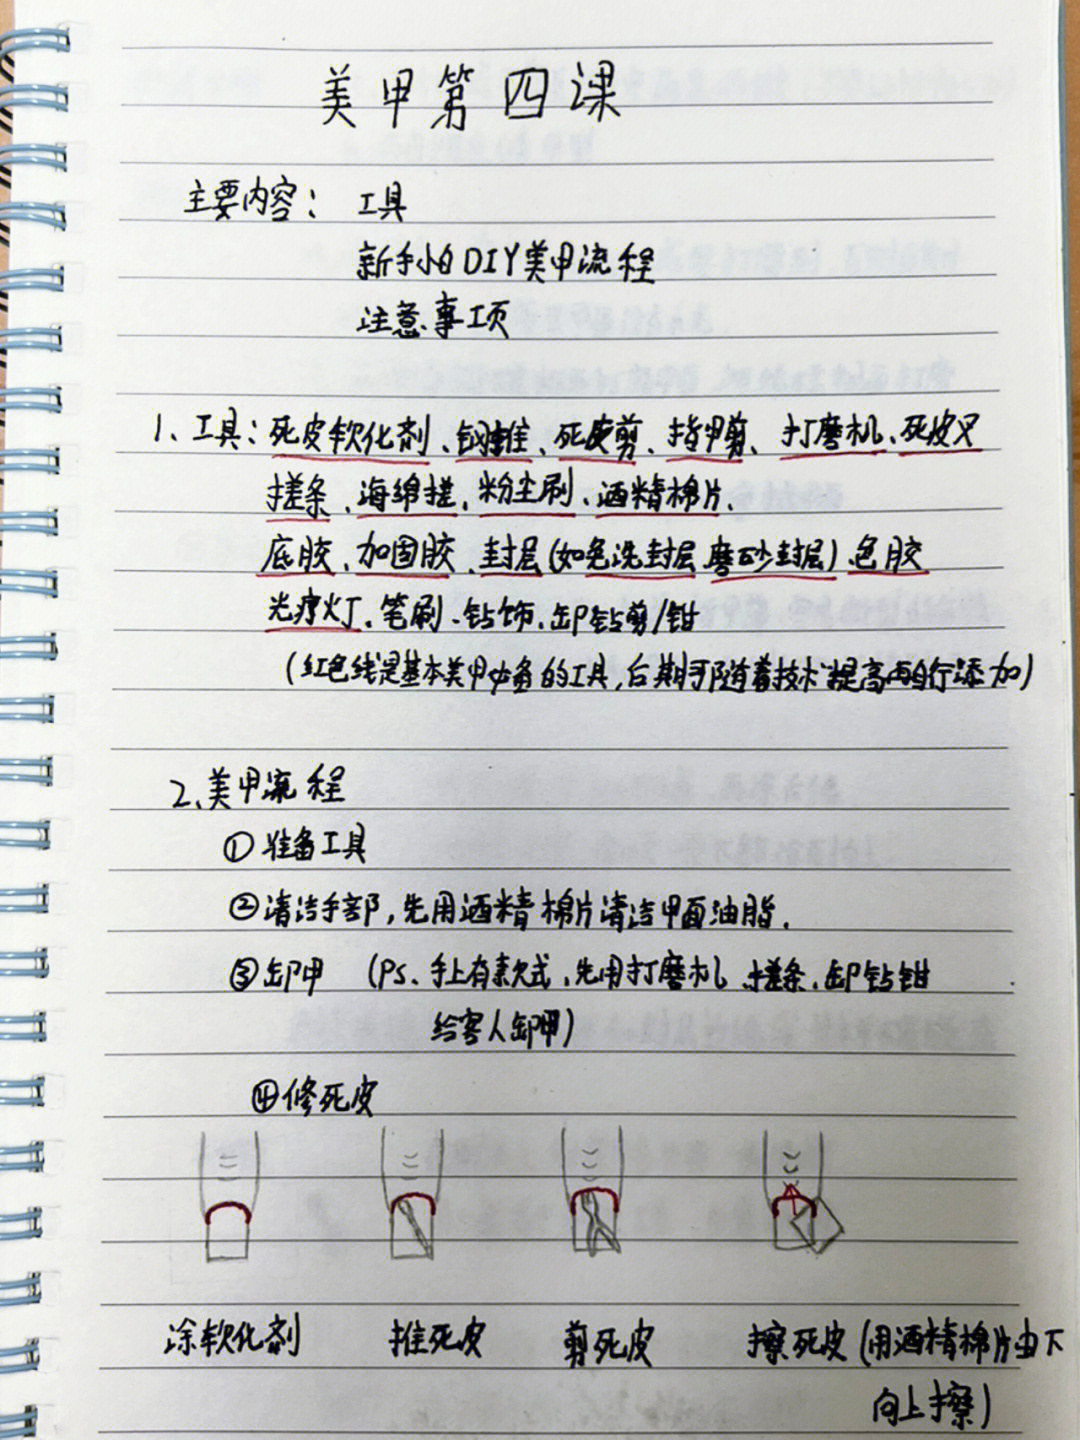 美甲第四课
主要内容：工具
新手小白DIY美甲流程
注意事项
1、工具：死皮软化剂、钢推、死皮剪、指甲剪、打磨机、死皮叉
搓条、海绵搓、粉尘刷、酒精棉片、
底胶、加固胶、封层(如免洗封层 磨砂封层)色胶
光疗灯、笔刷、钻饰、卸钻剪/钳
(红色线是基本美甲必备的工具，后期可随着技术提高再自行添加)
2、美甲流程
①准备工具
②清洁手部，先用酒精棉片清洁甲面油脂.
③卸甲 (PS、手上有款式，先用打磨机、搓条、卸钻钳
给客人卸甲)
④修死皮
涂软化剂 推死皮 剪死皮 擦死皮(用酒精棉片由下
向上擦)